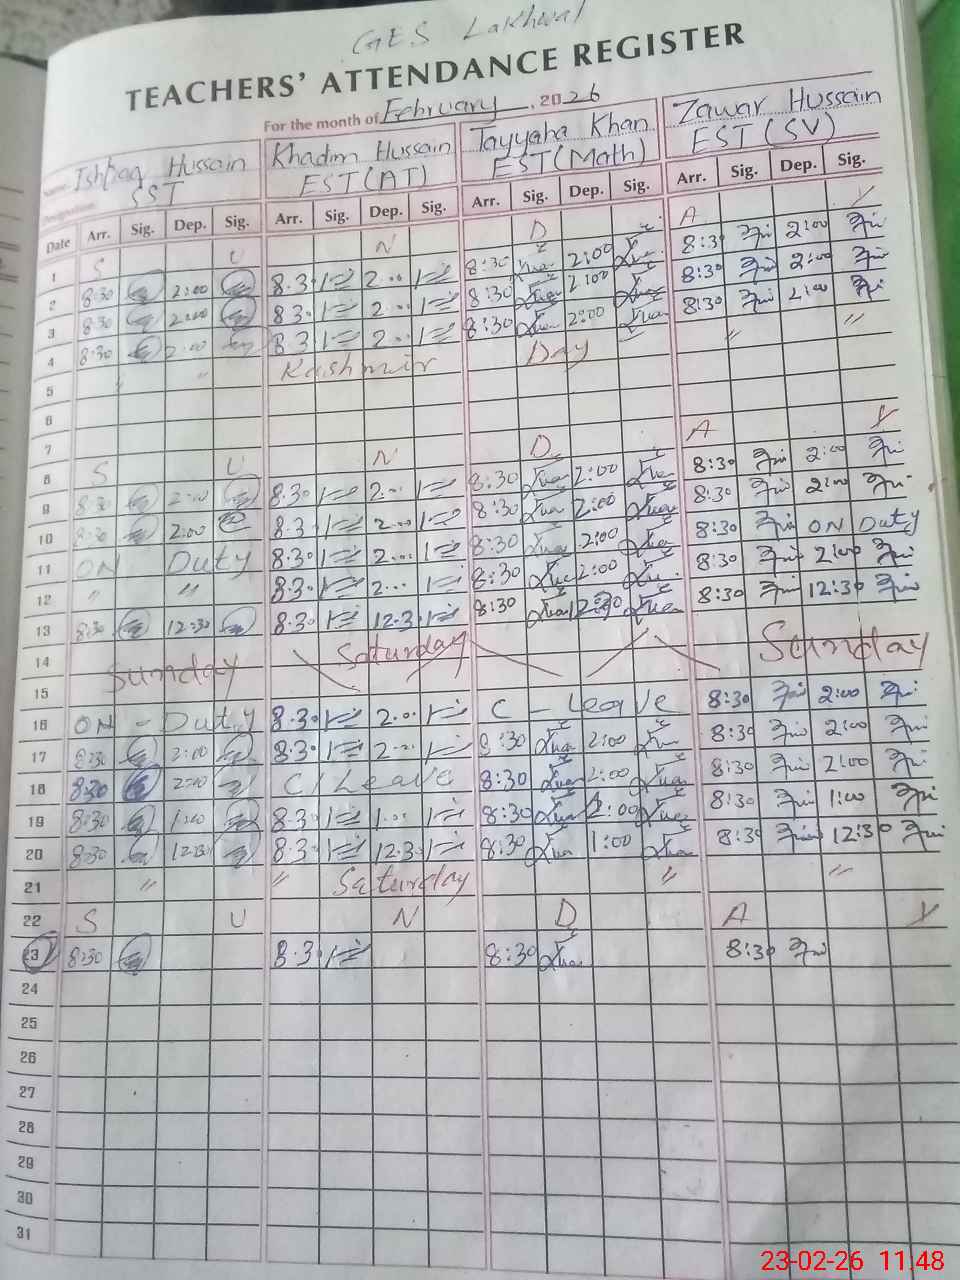 GES Lakhwal
TEACHERS' ATTENDANCE REGISTER
For the month of February, 2026
Name Ishtiaq Hussain Khadim Hussain Tayyaba Khan Zawar Hussain
Designation SST EST(AT) EST(Math) EST(SV)
Date Arr. Sig. Dep. Sig. Arr. Sig. Dep. Sig. Arr. Sig. Dep. Sig. Arr. Sig. Dep. Sig.
1 S U N D A Y
2 8:30 2:00 8.30 2.00 8:30 2:00 8:30 2:00
3 8:30 2:00 8.30 2.00 8:30 2:00 8:30 2:00
4 8:30 2:00 8.30 2.00 8:30 2:00 8:30 2:00
5 " " Kashmir Day " "
6
7
8 S U N D A Y
9 8:30 2:00 8.30 2.00 8:30 2:00 8:30 2:00
10 8:30 2:00 8.30 2.00 8:30 2:00 8:30 2:00
11 ON Duty 8.30 2.00 8:30 2:00 8:30 ON Duty
12 " " 8.30 2.00 8:30 2:00 8:30 2:00
13 8:30 12:30 8.30 12.30 8:30 12:30 8:30 12:30
14 Saturday
15 Sunday Sunday
16 ON - Duty 8.30 2.00 C - Leave 8:30 2:00
17 8:30 2:00 8.30 2.00 8:30 2:00 8:30 2:00
18 8:30 2:00 C/Leave 8:30 2:00 8:30 2:00
19 8:30 1:00 8.30 1.00 8:30 2:00 8:30 1:00
20 8:30 12:30 8.30 12.30 8:30 1:00 8:30 12:30
21 " " Saturday " "
22 S U N D A Y
23 8:30 8.30 8:30 8:30
24
25
26
27
28
29
30
31
23-02-26 11:48